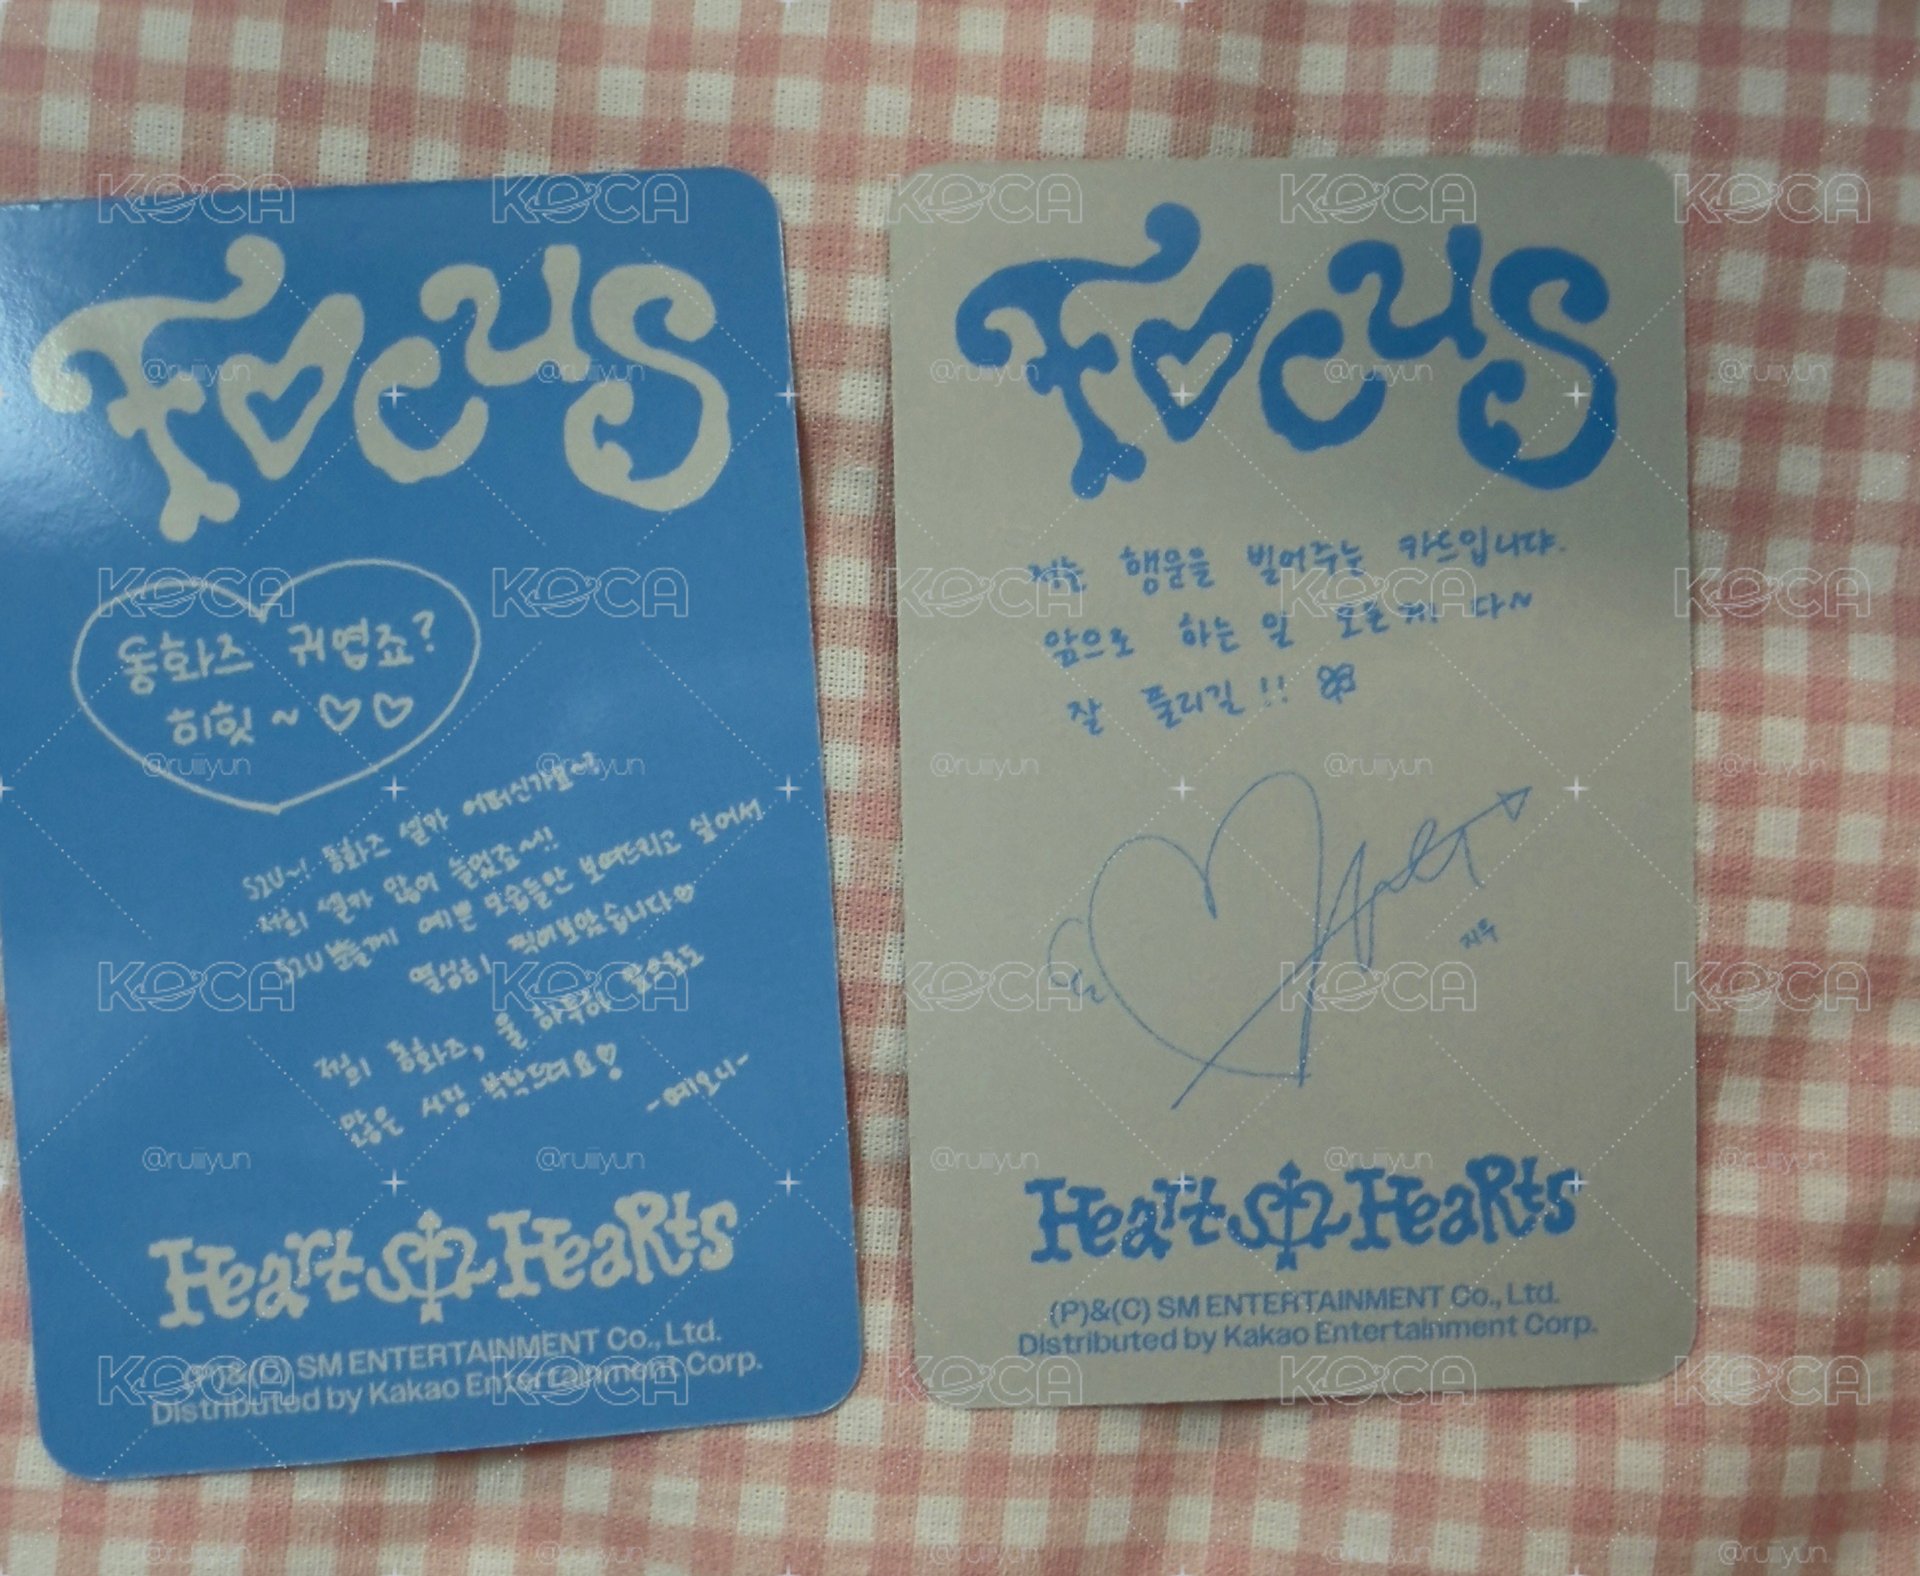 Focus
동화즈 귀엽죠?
히힛~♡♡
S2U~! 동화즈 셀카 어떠신가요~?
저희 셀카 많이 늘었죠~!!
S2U분들께 예쁜 모습들만 보여드리고 싶어서
열심히 찍어보았습니다♡
저희 동화즈, 앞으로도
많은 사랑 부탁드려요♡
-예오니-
Heart S2 Hearts
(P)&(C) SM ENTERTAINMENT Co., Ltd.
Distributed by Kakao Entertainment Corp.
Focus
저는 행운을 빌어주는 카드입니다.
앞으로 하는 일 모든게! 다~
잘 풀리길!!
지우
Heart S2 Hearts
(P)&(C) SM ENTERTAINMENT Co., Ltd.
Distributed by Kakao Entertainment Corp.
KOCA
@ruiiyun